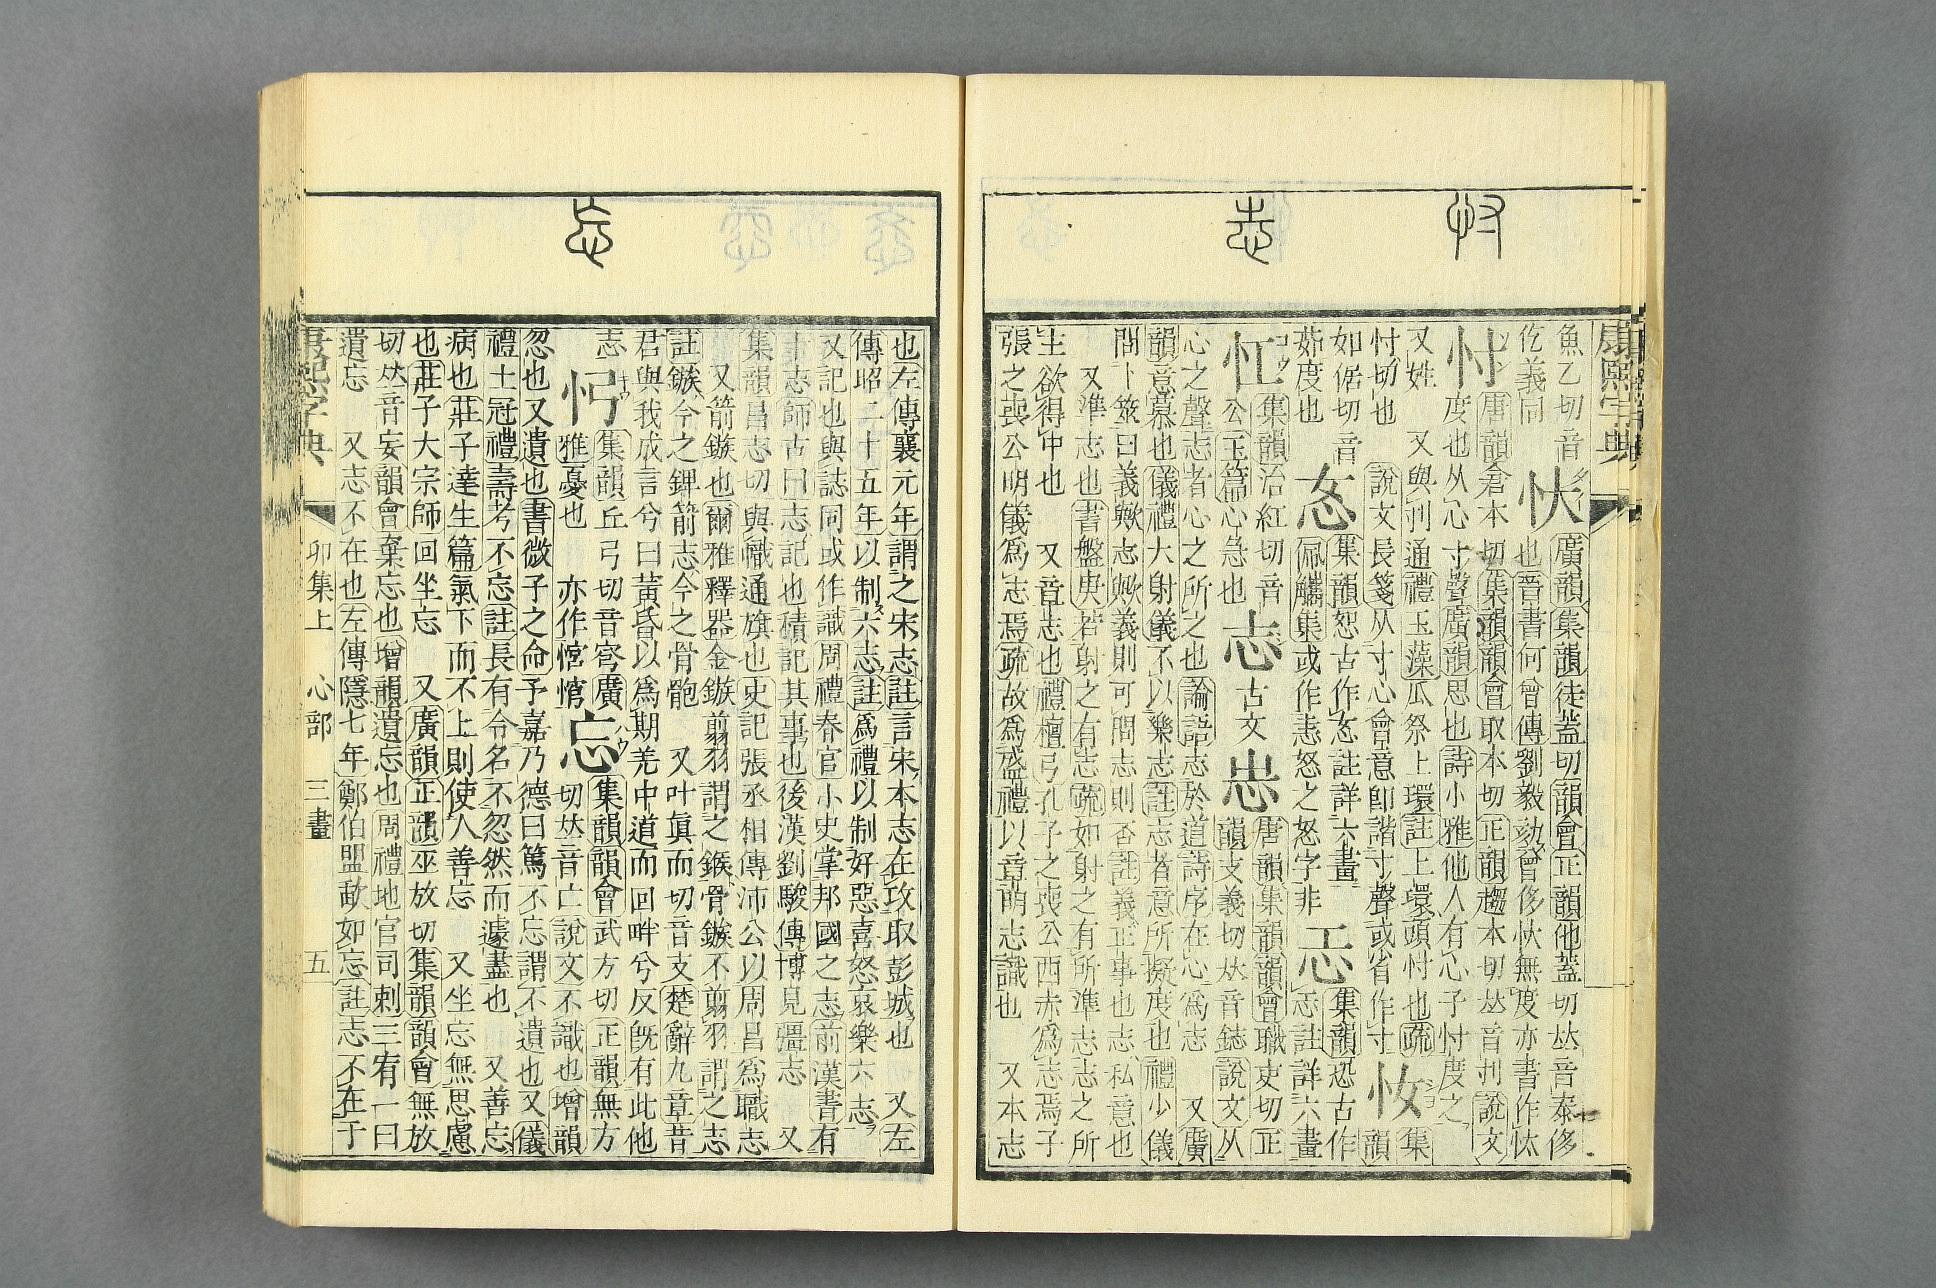 康熙字典
魚乙切音仡義同 忕 廣韻集韻徒蓋切韻會正韻他蓋切𠀤音泰侈
也晉書何曾傳劉毅劾曾侈忕無度亦書作忲
忖 唐韻倉本切集韻韻會取本切正韻趨本切𠀤音刌說文
度也从心寸聲廣韻思也詩小雅他人有心予忖度之
又姓 又與刌通禮玉藻瓜祭上環註上環頭忖也疏
忖切也 說文長箋从寸心會意卽諧寸聲或省作寸 㤅 集
韻
如倨切音茹度也 㣽 集韻恕古作㣽註詳六畫
佩觿集或作恚怒之怒字非 忈 集韻恐古作
忎註詳六畫
忹 集韻沽紅切音公玉篇心急也 志 古文 㞢 唐韻集韻韻會職吏切正
韻支義切𠀤音鋕說文从
心之聲志者心之所之也論語志於道詩序在心爲志 又廣
韻意慕也儀禮大射儀不以樂志註志者意所擬度也禮少儀
問卜筮曰義歟志歟義則可問志則否註義正事也志私意也
又準志也書盤庚若射之有志疏如射之有所準志志之所
主欲得中也 又音志也禮檀弓孔子之喪公西赤爲志焉子
張之喪公明儀爲志焉疏故爲盛禮以章明志識也 又本志
也左傳襄元年謂之宋志註言宋本志在攻取彭城也 又左
傳昭二十五年以制六志註爲禮以制好惡喜怒哀樂六志
又記也與誌同或作識周禮春官小史掌邦國之志前漢書有
十志師古曰志記也積記其事也後漢劉駿傳博見彊志 又
集韻昌志切與幟通旗也史記張丞相傳沛公以周昌爲職志
又箭鏃也爾雅釋器金鏃翦羽謂之鍭骨鏃不翦羽謂之志
註鏃今之錍箭志今之骨骲 又叶眞而切音支楚辭九章昔
君與我成言兮曰黃昏以爲期羌中道而回畔兮反旣有此他
志 忛 集韻丘弓切音穹廣雅憂也 亦作㤨悺 忘 集韻韻會武方切正韻無方
切𠀤音亡說文不識也增韻
忽也又遺也書微子之命予嘉乃德曰篤不忘謂不遺也又儀
禮士冠禮壽考不忘註長有令名不忽然而遽盡也 又善忘
病也莊子達生篇氣下而不上則使人善忘 又坐忘無思慮
也莊子大宗師回坐忘 又廣韻正韻巫放切集韻韻會無放
切𠀤音妄韻會棄忘也增韻遺忘也周禮地官司刺三宥一曰
遺忘 又志不在也左傳隱七年鄭伯盟歃如忘註志不在于
康熙字典 卯集上 心部 三畫 五